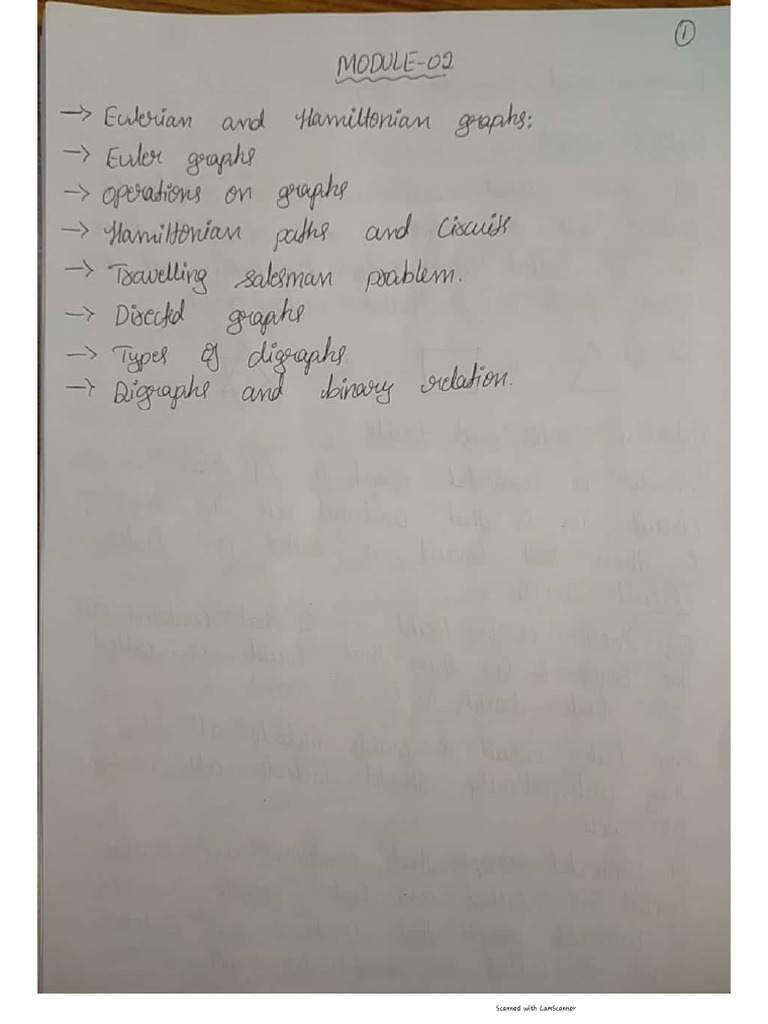 ①
MODULE-02
→ Eulerian and Hamiltonian graphs:
→ Euler graphs
→ operations on graphs
→ Hamiltonian paths and Circuits
→ Travelling salesman problem.
→ Directed graphs
→ Types of digraphs
→ Digraphs and binary relation.
Scanned with CamScanner